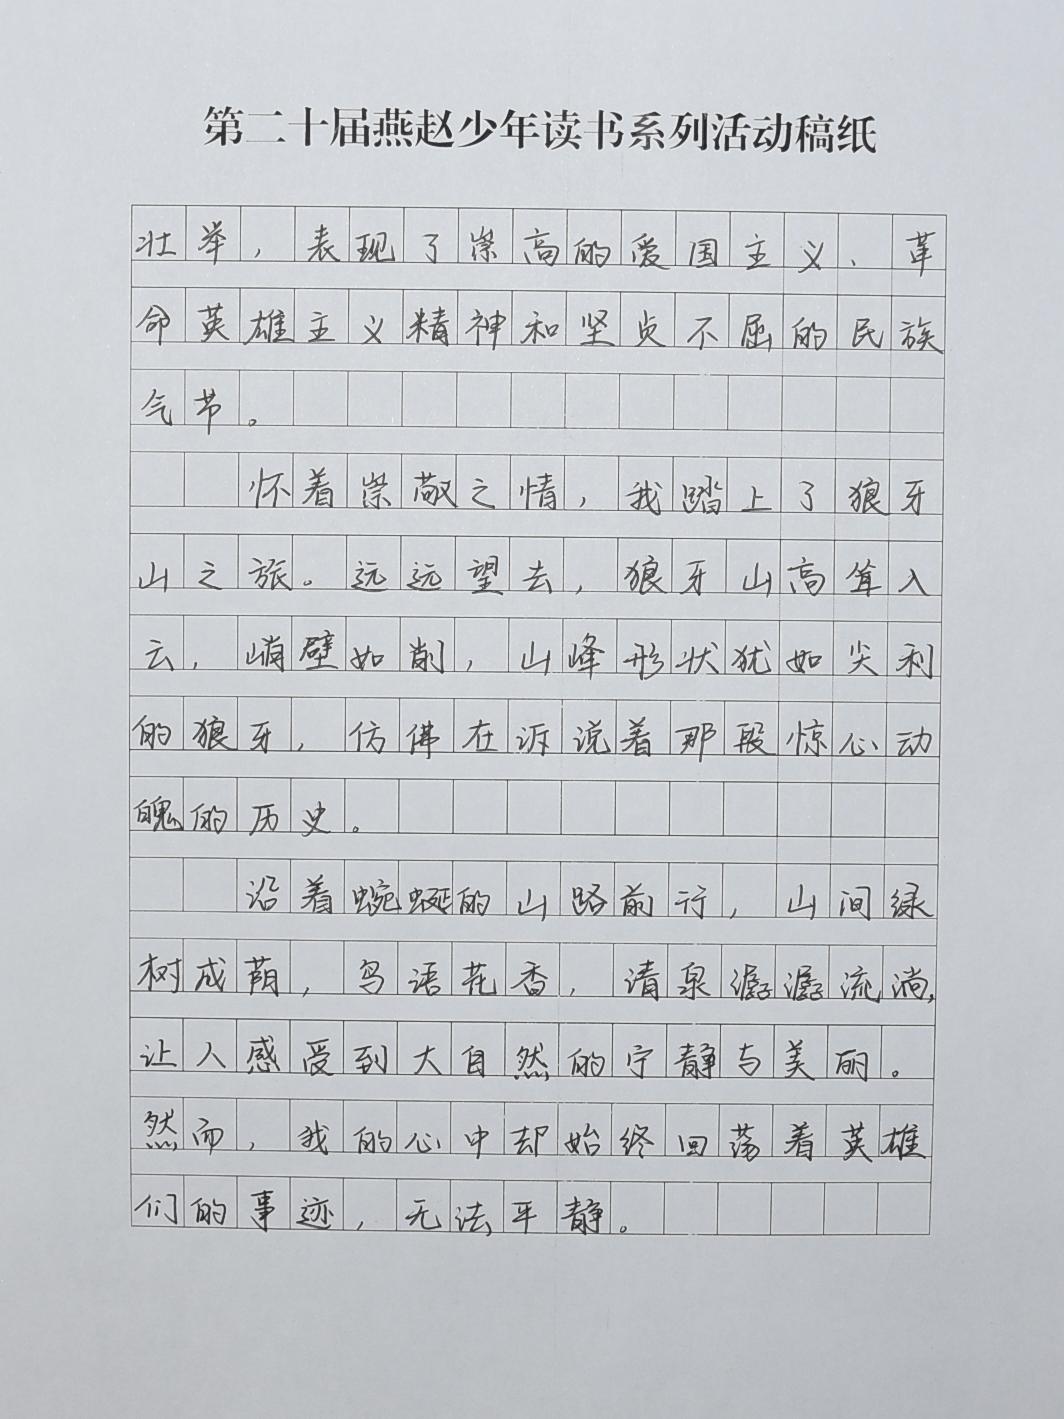 第二十届燕赵少年读书系列活动稿纸
壮举，表现了崇高的爱国主义、革
命英雄主义精神和坚贞不屈的民族
气节。
怀着崇敬之情，我踏上了狼牙
山之旅。远远望去，狼牙山高耸入
云，峭壁如削，山峰形状犹如尖利
的狼牙，仿佛在诉说着那段惊心动
魄的历史。
沿着蜿蜒的山路前行，山间绿
树成荫，鸟语花香，清泉潺潺流淌，
让人感受到大自然的宁静与美丽。
然而，我的心中却始终回荡着英雄
们的事迹，无法平静。